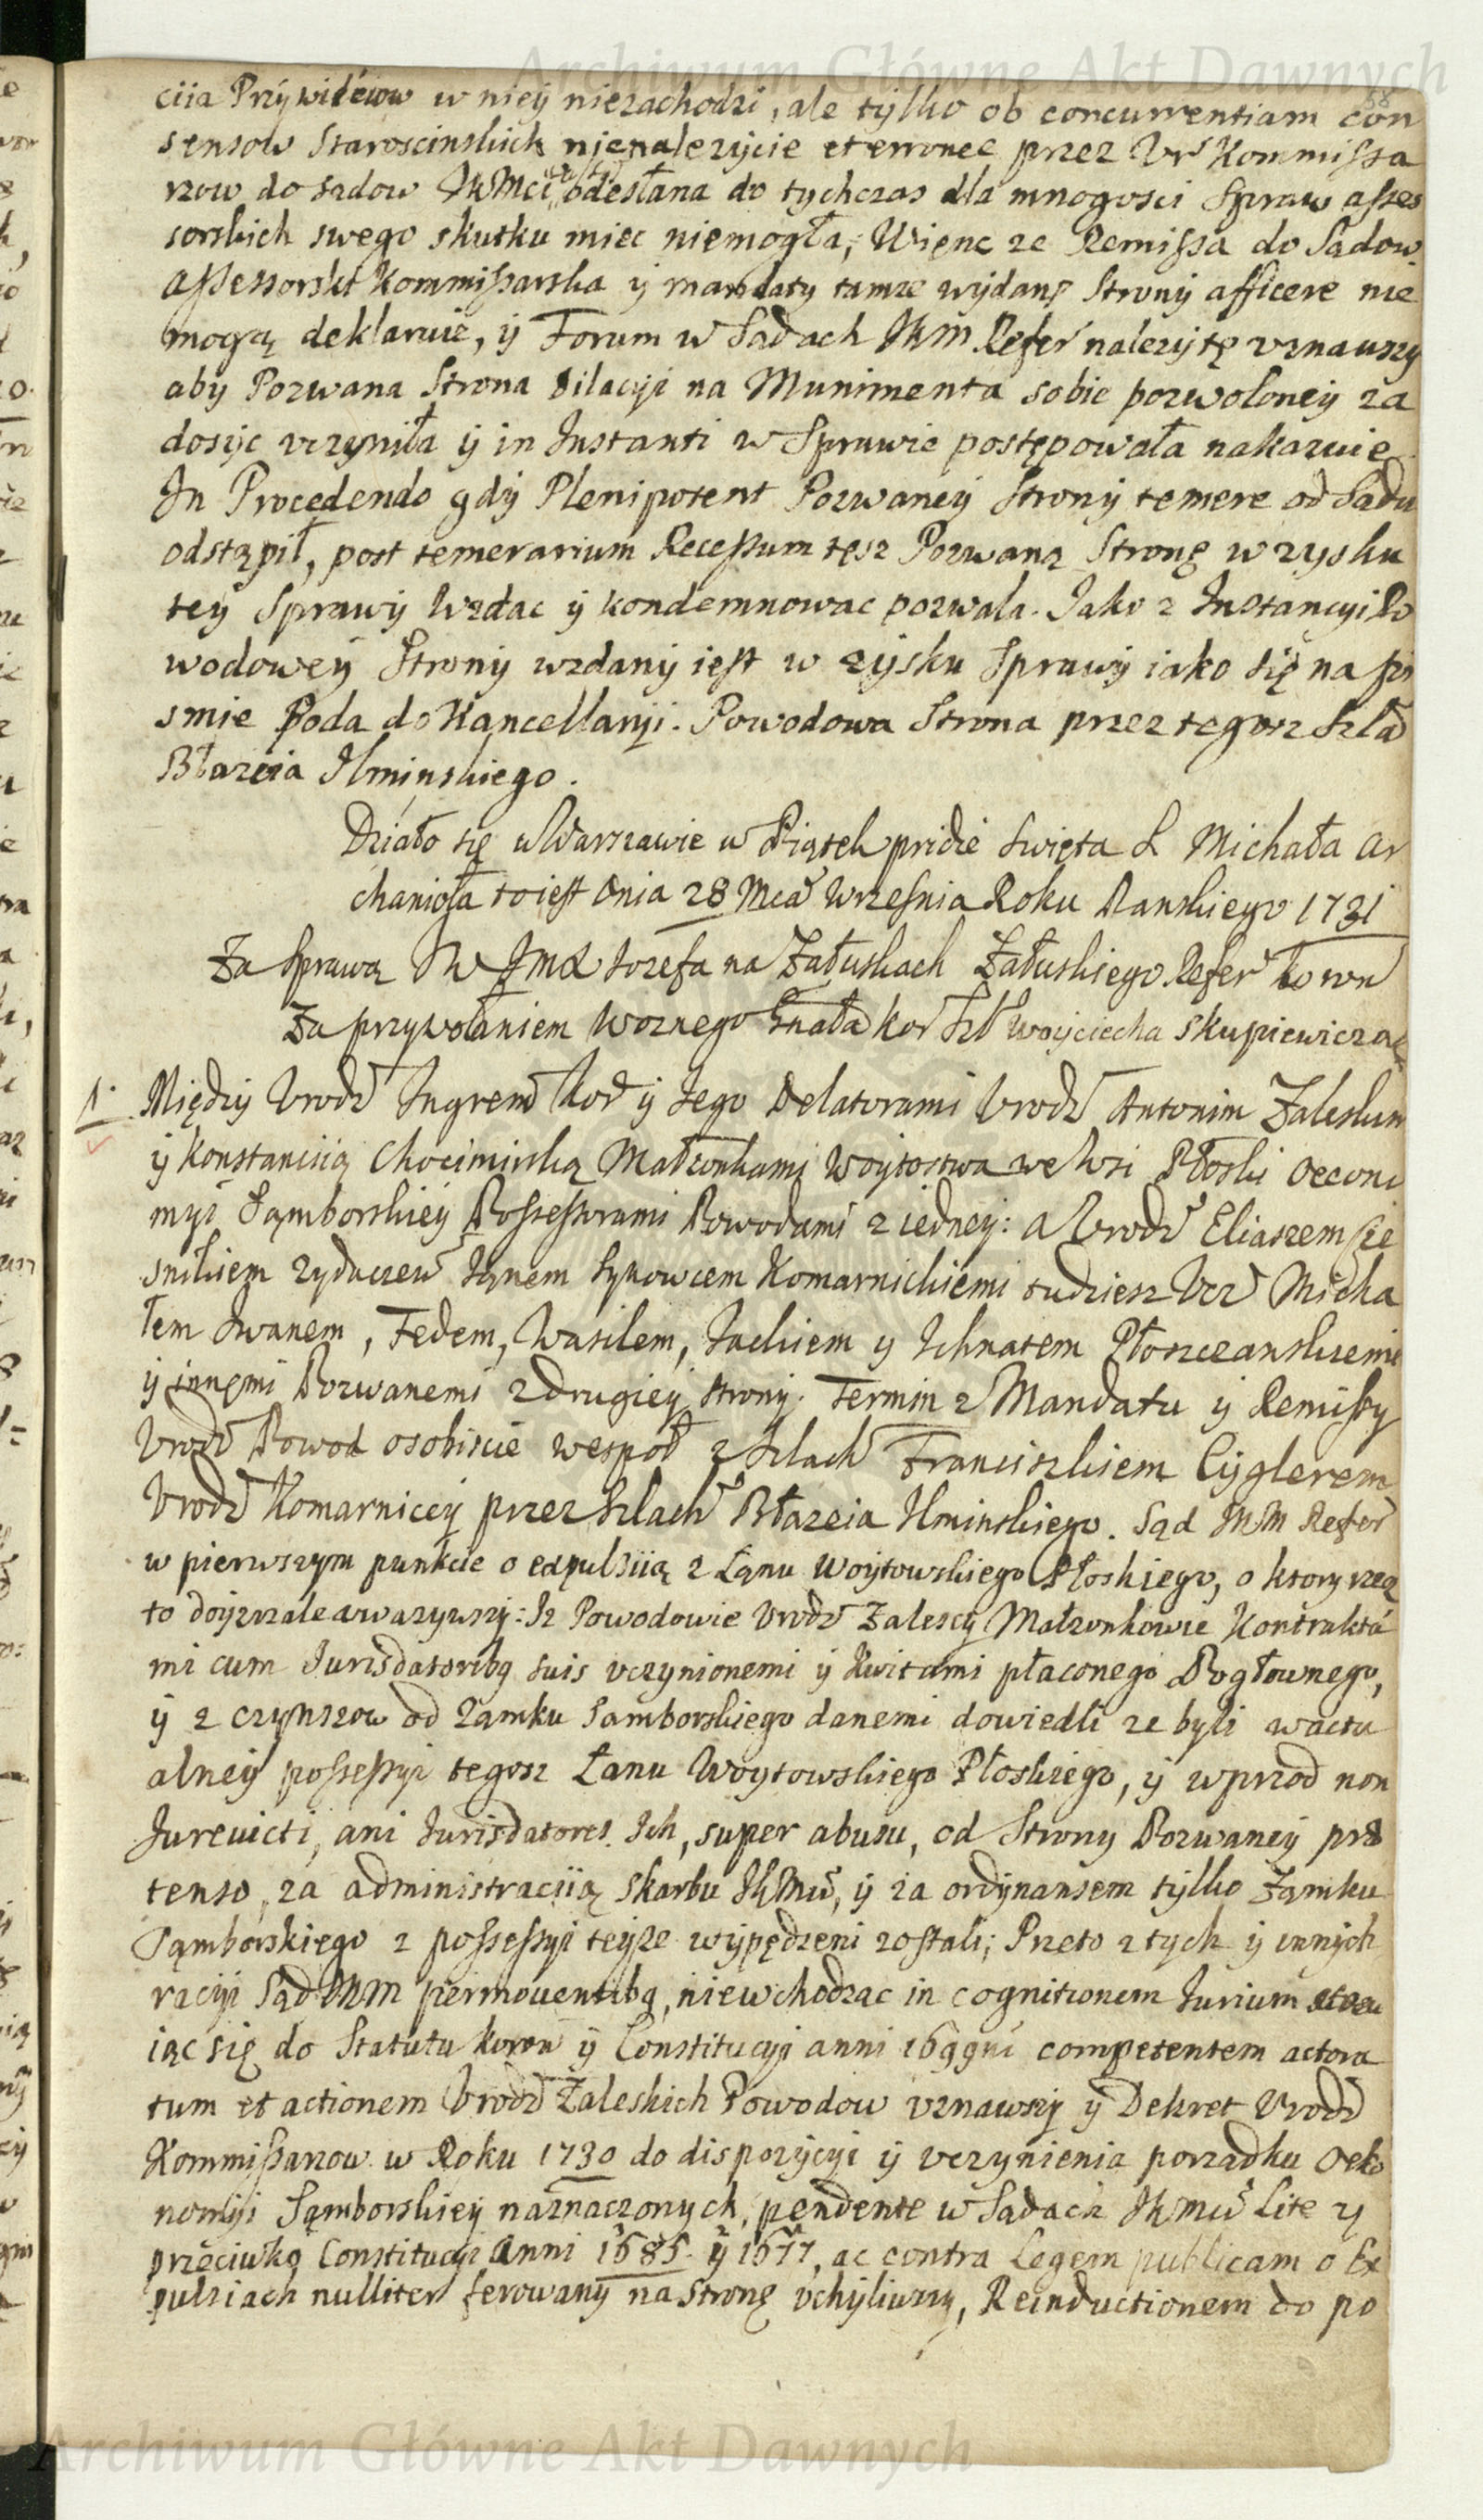 Archiwum Główne Akt Dawnych
ciia Przywileiow w nieÿ niezachodzi, ale tÿlko ob concurrentiam con
sensow Staroscinskich nienalezÿcie et erronee przez Vr Kommissa
rzow do sądow JKMci odesłana do tychczas dla mnogosci Spraw asses
sorskich swego skutku miec niemogła, Więnc ze Remissa do Sądow
assessorski Kommissarska ÿ mandaty tamze wÿdanę Stronÿ afficere nie
mogą deklaruie, ÿ Forum w Sądach JKM Refer nalezÿtę vznawszy
aby Pozwana Strona Dilacÿi na Munimenta sobie pozwoloneÿ za
dosÿc vczÿniła ÿ in Instanti w Sprawie postępowała nakazuie
In Procedendo gdÿ Plenipotent Pozwaneÿ Stronÿ temere od Sądu
odstąpił, post temerarium Recessum tesz Pozwaną Stronę w zysku
teÿ Sprawÿ Wzdac ÿ kondemnowac pozwala. Jako z Instancyi Po
wodoweÿ Stronÿ wzdanÿ iest w zÿsku Sprawÿ iako się na pi
smie Poda do Kancellarÿi. Powodowa Strona przez tegosz Szla
Błazeia Jlminskiego.
Działo się w Warszawie w Piątek pridie Swięta S Michała Ar
chanioła to iest Dnia 28 Mca Wrzesnia Roku Panskiego 1731
Za Sprawą JW JmX Jozefa na Załuskach Załuskiego Refer Kown
Za przywołaniem Woznego Gnała Kor Szl Woyciecha Skupiewicza
1. Międzÿ Vrodz Jngrem Kor ÿ Jego Delatorami Vrodz Antonim Zaleskim
ÿ Konstanciią Chocimirską Małzonkami Woÿtostwa we Wsi Płoski Oecono
mÿi Sąmborskieÿ Possessorami Powodami z iedneÿ: a Vrodz Eliaszem Cze
snikiem Zydaczew Janem Synowcem Komarnickiemi tudziesz Vcz Micha
łem Jwanem, Fedem, Wasilem, Jackiem y Jchnatem Płoszczanskiemi
ÿ innemi Pozwanemi z drugieÿ stronÿ. Termin z Mandatu ÿ Remissy
Vrodz Powod osobiscie wespoł z Szlach Franciszkiem Cÿglerem
Vrodz Komarniceÿ przez Szlach Błazeia Jlminskiego. Sąd JKM Refer
w pierwszym punkcie o expulsiią z Łanu Woÿtowskiego Płoskiego, o ktory rzecz
to doÿzrzale uwazywszÿ: Jz Powodowie Vrodz Zalescÿ Małzonkowie Kontraktá
mi cum Jurisdatoribq suis vczynionemi ÿ Kwitami płaconego Pogłownego,
ÿ z czynszow od Zamku Samborskiego danemi dowiedli ze byli w actu
alneÿ possessyi tegosz Łanu Woytowskiego Płoskiego, ÿ wprzod non
Jurevicti, ani Jurisdatores Jch, super abusu, od Strony Pozwaneÿ præ
tenso, za administraciią Skarbu JKMci, ÿ za ordÿnansem tÿlko Zamku
Sąmborskiego z possessyi teÿze wÿpędzeni zostali; Przeto z tych ÿ innÿch
racyi Sąd JKM permoventibq, niewchodząc in cognitionem Jurium
iąc się do Statutu Koron ÿ Constitucyi anni 1699ni competentem actora
tum et actionem Vrodz Zaleskich Powodow vznawszÿ ÿ Dekret Vrodz
Kommissarzow w Roku 1730 do dispozÿcyi ÿ vczÿnienia porządku Oeko
nomÿi Sąmborskieÿ naznaczonych, pendente w Sądach JKMci Lite y
przeciwko Constitucÿi Anni 1685. ÿ 1677, ac contra Legem publicam o Ex
pulsiach nulliter ferowanÿ na stronę vchÿliwszy, Reinductionem do po
Archiwum Główne Akt Dawnych